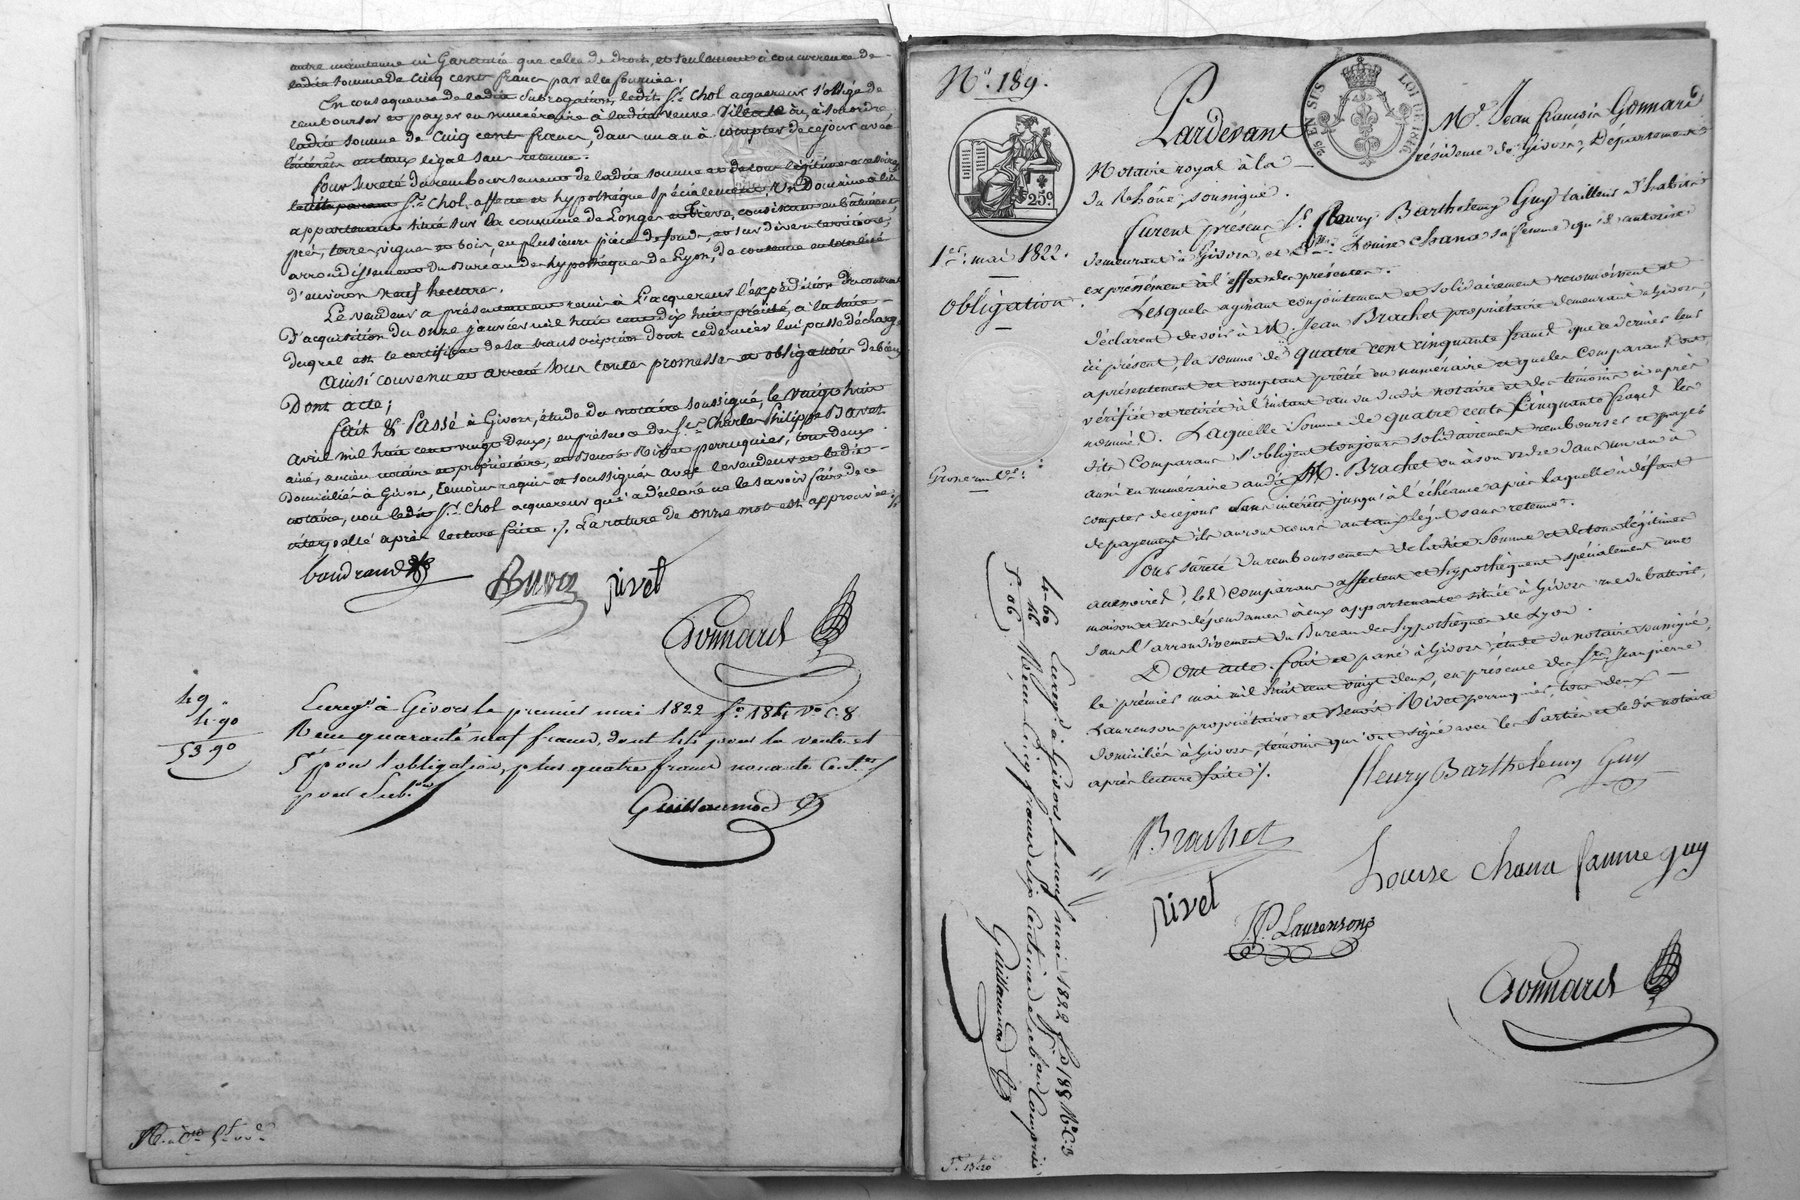 autre maintenue ni Garantie que celle de droit, et seulement à concurrence de
ladite somme de Cinq cents francs par elle fournie.
En conséquence de ladite subrogation, ledit Sr. Chol acquereur s'oblige de
rembourser et payer en numéraire à ladite veuve
ladite somme de Cinq cents francs, dans un an à compter de ce jour avec
intérêts au taux légal sans retenue.
Pour sureté du remboursement de ladite somme et de tous légitimes accessoires
Sr. Chol, affecte et hypothèque spécialement un Domaine à lui
appartenant situé sur la commune de Longes et Trèves, consistant en bâtiments,
prés, terres, vignes et bois, en plusieurs pièces de fonds, et sur divers territoires,
arrondissement du Bureau des hypothèques de Lyon, de contenue en totalité
d'environ neuf hectares.
Le vendeur a présentement remis à l'acquereur l'expédition du contrat
D'acquisition du onze janvier mil huit cent dix huit précité, à la suite
duquel est le certificat de la transcription dont ce dernier lui passe décharge
Ainsi convenu et arrêté sous toutes promesses et obligations de biens
Dont acte;
fait & Passé à Givors, étude du notaire soussigné, le vingt huit
avril mil huit cent vingt deux; en présence des Srs. Charles Philippe Bavet
ainé, ancien notaire et propriétaire, et Benoit Rivet perruquier, tous deux
Domiciliés à Givors, témoins requis et soussignés avec le vendeur et ledit
notaire, non ledit Sr. Chol acquereur qui a déclaré ne le savoir faire de ce
interpellé après lecture faite ./. La rature de onze mots est approuvée ./.
baudrand
rivet
Gonnard
49"
4.90
53.90
Enregé. à Givors le premier mai 1822 fo. 184 Vo. C. 8
Reçu quarante neuf francs, dont 44f pour la vente et
5f pour l'obligation, plus quatre francs nonante Centes
pour Subon
Guillaumod
No. 189.
1er. mai 1822.
Obligation
25c
25 EN SUS
LOI DE 1816
Pardevant Me. Jean François Gonnard
Notaire royal à la résidence de Givors, Département
du Rhône, soussigné.
furent présens Sr. fleury Barthelemy Guy tailleur d'habits
demeurant à Givors, et De. Louise Chana sa femme qu'il autorise
expressément à l'effet des présentes.
Lesquels agissant conjointement et solidairement reconnoissent et
déclarent devoir à M. Jean Brachet propriétaire demeurant à Givors,
ici présent, la somme de quatre cent cinquante francs que ce dernier leur
a présentement et comptant prêtée en numéraire et que les Comparants ont
vérifiée et retirée à l'instant au vu dudit notaire et des témoins ci après
nommés. Laquelle Somme de quatre cents Cinquante francs les
dits Comparans s'obligent toujours solidairement rembourser et payer
aussi en numéraire audit M. Brachet ou à son ordre dans un an à
compter de ce jour sans intérêts jusqu'à l'échéance après laquelle à défaut
de payement ils auront cours au taux légal sans retenue.
Pour sûreté du remboursement de ladite Somme et de tous légitimes
accessoires, les Comparans affectent et hypothèquent spécialement une
maison et ses dépendances à eux appartenante située à Givors rue du battoir,
dans l'arrondissement du Bureau des hypothèques de Lyon.
Dont acte. fait et passé à Givors, étude du notaire soussigné,
le premier mai mil huit cent vingt deux, en présence des Srs. Jean pierre
Laurenson propriétaire et Benoit Rivet perruquier, tous deux
domiciliés à Givors, témoins qui ont signé avec les Parties et ledit notaire
après lecture faite ./.
fleury Barthelemy Guy
Brachet
Louise chana famme guy
rivet
J.P. Laurenson
Gonnard
4-60
46
5.06
Enregé. à Givors le neuf mai 1822 fo 188 Vo. C. 3
Reçu cinq francs six centimes Subon Comprise
Guillaumod